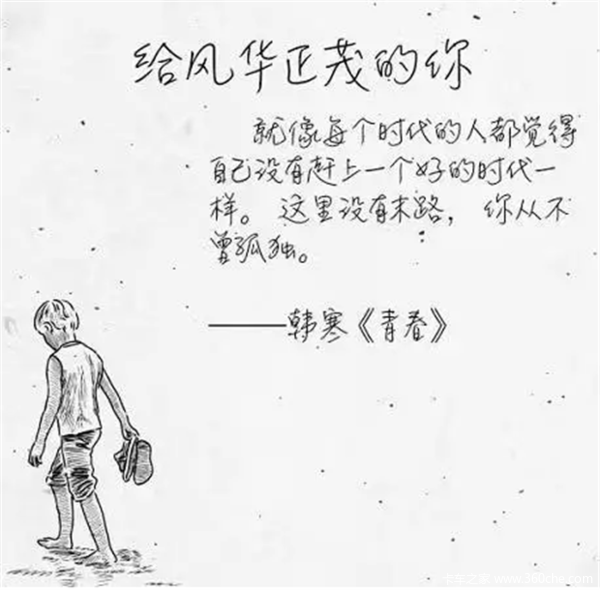 给风华正茂的你
就像每个时代的人都觉得
自己没有赶上一个好的时代一
样。 这里没有末路， 你从不
曾孤独。
——韩寒《青春》
卡车之家 www.360che.com